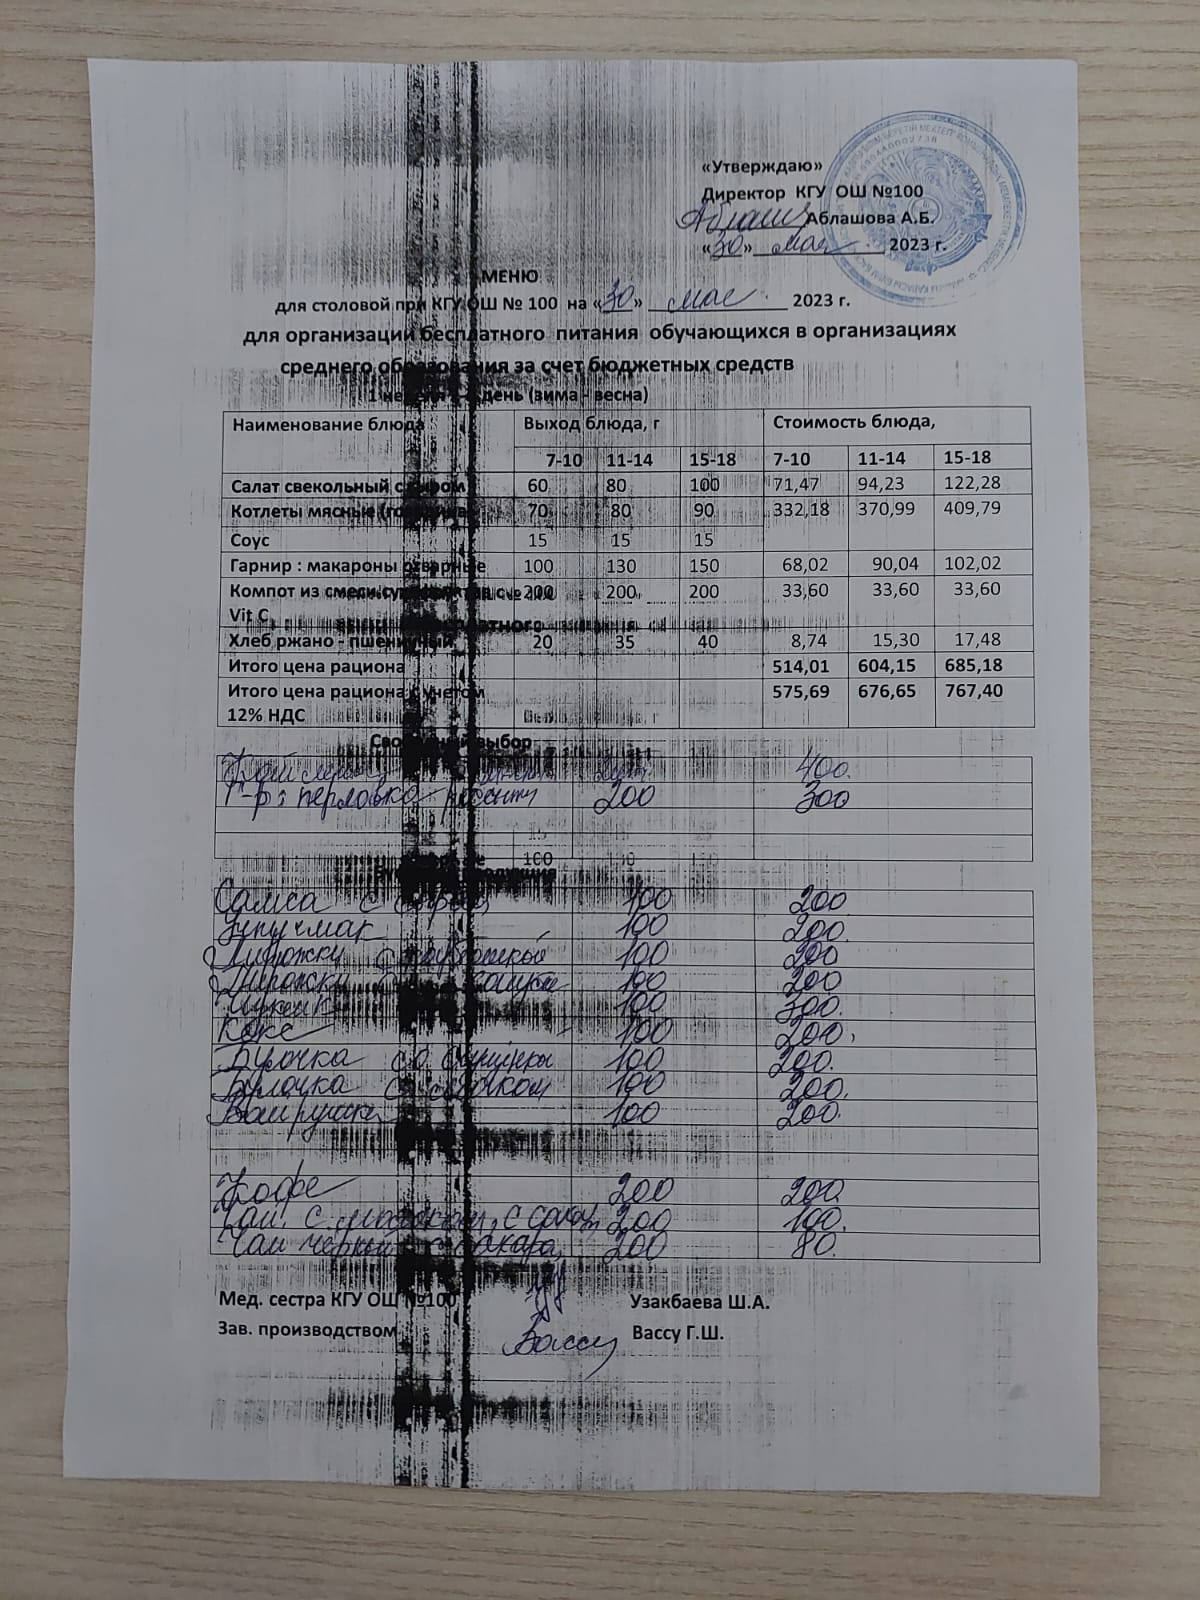 «Утверждаю»
Директор КГУ ОШ №100
Аблашова А.Б.
«30» мая 2023 г.
МЕНЮ
для столовой при КГУ ОШ № 100 на «30» мая 2023 г.
для организации бесплатного питания обучающихся в организациях
среднего образования за счет бюджетных средств
1 неделя день (зима - весна)
Наименование блюда Выход блюда, г Стоимость блюда,
7-10 11-14 15-18 7-10 11-14 15-18
Салат свекольный с сыром 60 80 100 71,47 94,23 122,28
Котлеты мясные 70 80 90 332,18 370,99 409,79
Соус 15 15 15
Гарнир : макароны отварные 100 130 150 68,02 90,04 102,02
Компот из смеси сухофруктов с 200 200 200 33,60 33,60 33,60
Vit C
Хлеб ржано - пшеничный 20 35 40 8,74 15,30 17,48
Итого цена рациона 514,01 604,15 685,18
Итого цена рациона с учетом 575,69 676,65 767,40
12% НДС
Свободный выбор
400.
Г-р: перловка рассыпч 200 300
Буфетная продукция
Самса с сыром 100 200
Учпучмак 100 200.
Пирожки с картошкой 100 200
Пирожки 100 200
100 300.
Кекс 100 200.
Булочка со сгущенкой 100 200.
Булочка 100 200.
Ватрушка 100 200.
Кофе 200 200.
Чай с молоком, с сахар 200 100.
Чай черный с сахаро 200 80.
Мед. сестра КГУ ОШ №100 Узакбаева Ш.А.
Зав. производством Вассу Вассу Г.Ш.